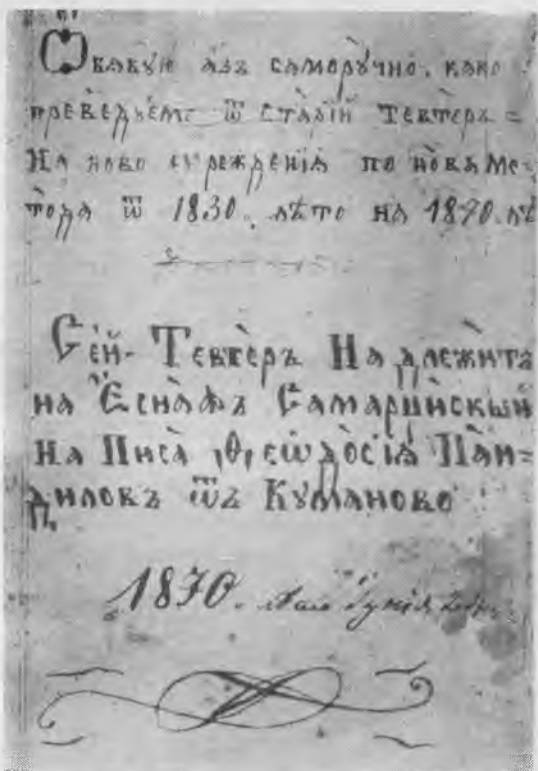 Ѡбавꙋю азъ саморꙋчно. како
преведъемъ ѿ старїй Тевтеръ =
На ново ꙋчреждения по новъ ме-
тода ѿ 1830. лѣто на 1870. лѣ
Сей- Тевтеръ Надлежитъ
на Еснафъ Самарџискый
На Писа Ѳеѡдосїа Паи=
диловъ ѿъ Кꙋманово
1870.